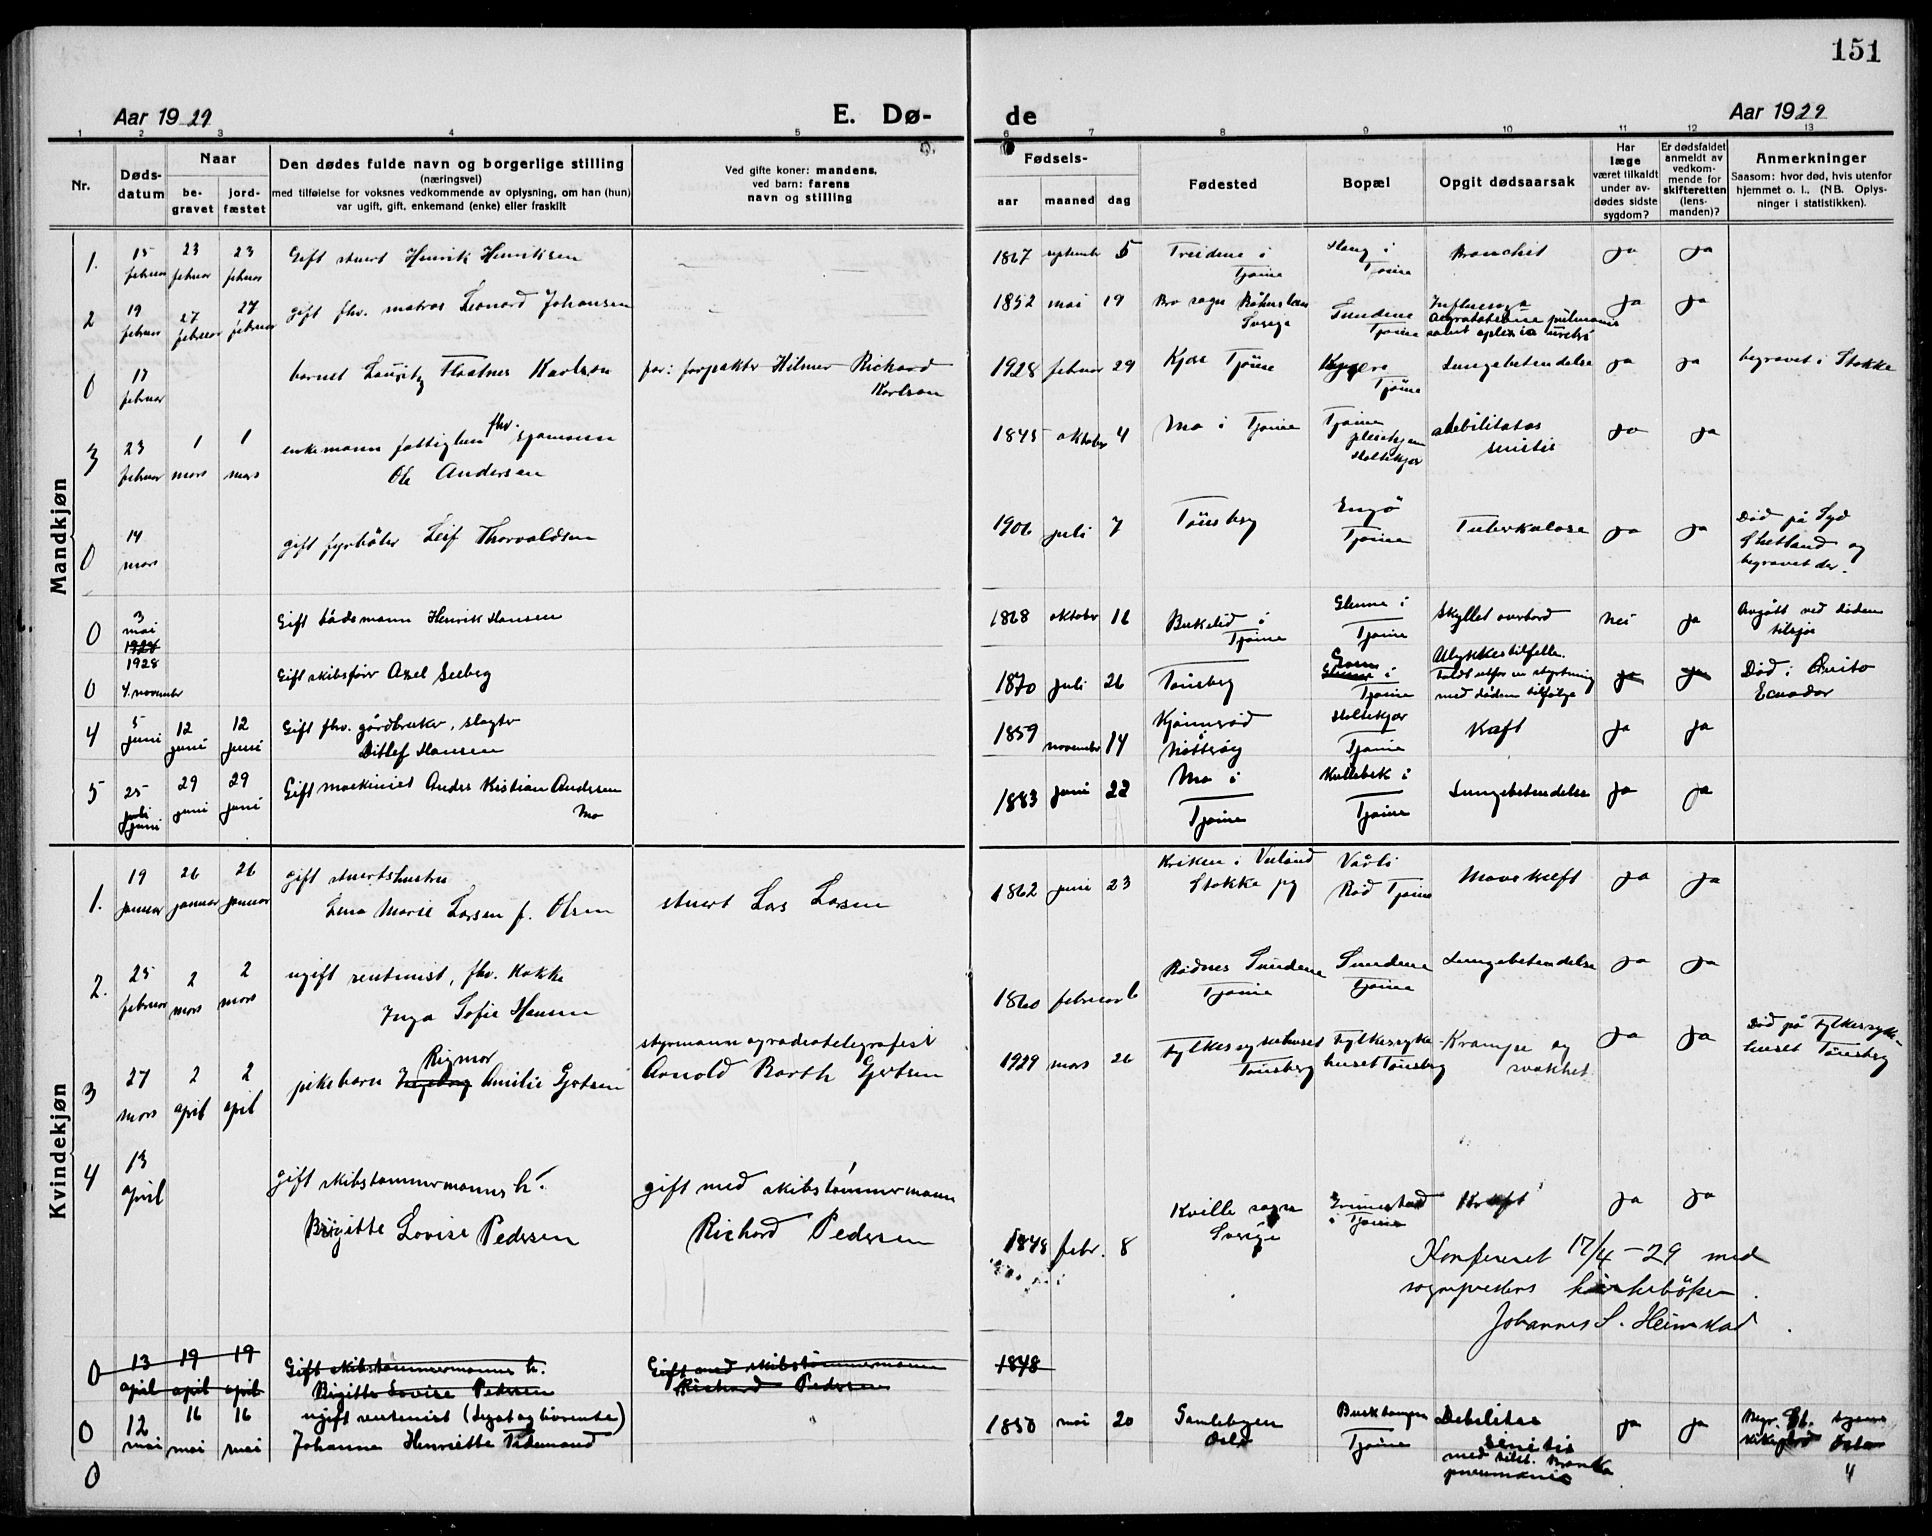 151
Aar 1929 E. Dø- de Aar 1929
1 2 3 4 5 6 7 8 9 10 11 12 13
Nr. Dødsdatum Naar begravet jordfæstet
Den dødes fulde navn og borgerlige stilling
(næringsvei)
med tilføielse for voksnes vedkommende av oplysning, om han (hun)
var ugift, gift, enkemand (enke) eller fraskilt
Ved gifte koner: mandens,
ved barn: farens
navn og stilling
Fødsels- aar maaned dag
Fødested
Bopæl
Opgit dødsaarsak
Har læge været tilkaldt under avdødes sidste sygdom?
Er dødsfaldet anmeldt av vedkommende for skifteretten (lensmanden)?
Anmerkninger
Saasom: hvor død, hvis utenfor hjemmet o. l., (NB. Oplysninger i statistikken).
Mandkjøn
1. 15 februar 23 februar 23 februar Gift stuert Henrik Henriksen 1867 september 5 Treidene i Tjøme Haug i Tjøme Bronchit ja ja
2 19 februar 27 februar 27 februar gift fhv. matros Leonard Johansen 1852 mai 19 Bro sogn Båhuslen Sverige Sundene Tjøme Influensa pulmonis ja ja
0 17 februar barnet Lauritz Flaatnes Karlson far: forpakter Hilmer Richard Karlson 1928 februar 29 Kjære Tjøme Tjøme Lungebetendelse ja ja begravet i Stokke
3 23 februar 1 mars 1 mars enkemann fattiglem fhv. sjømann Ole Andersen 1845 oktober 4 Mo i Tjøme Tjøme pleiehjem Holtekjær debilitas senilis ja ja
0 14 mars gift fyrbøter Leif Thorvaldsen 1906 juli 7 Tønsberg Engø Tjøme Tuberkulose ja ja Død på Syd Shetland og begravet der.
0 3 mai 1928 1928 Gift bådsmann Henrik Hansen 1868 oktober 16 Bukelid i Tjøme Glenne i Tjøme Skyllet overbord nei ja Avgått ved døden tilsjøs
0 4. november Gift skibsfører Axel Seeberg 1870 juli 26 Tønsberg Glenne i Tjøme Ulykkestilfelle. Faldt utfor en styrtning med døden tilfølge ja ja Død i Quito Ecuador
4 5 juni 12 juni 12 juni Gift fhv. gårdbruker, slagter Ditlef Hansen 1859 november 14 Kjønnerød Nøtterøy Holtekjær Tjøme Kræft ja ja
5 25 juli juni 29 juni 29 juni Gift maskinist Anders Kristian Andersen Mo 1883 juni 22 Mo i Tjøme Kullebek i Tjøme Lungebetendelse ja ja
Kvindekjøn
1. 19 januar 26 januar 26 januar gift stuertshustru Lena Marie Larsen f. Olsen stuert Lars Larsen 1862 juni 23 Stokke pg Rød Tjøme Mavekreft ja ja
2. 25 februar 2 mars 2 mars ugift rentenist, fhv. kokke Inga Sofie Hansen 1860 februar 6 Rødnes Sundene Tjøme Sundene Tjøme Lungebetendelse ja ja
3 27 mars 2 april 2 april pikebarn Ingeborg Rigmor Amilie Gjertsen styrmann og radiotelegrafist Arnold Barth Gjertsen 1929 mars 26 Fylkessykehuset Tønsberg Fylkessykehuset Tønsberg Krampe og svakhet ja ja Død på Fylkessykehuset Tønsberg
4 13 april gift skibstømmermanns h. Birgitte Lovise Pedersen gift med skibstømmermann Richard Pedersen 1848 febr. 8 Kville sogn Sverige Grimestad i Tjøme Kræft ja ja
Konfereret 17/4 – 29 med
sogneprestens kirkebøker.
Johannes S. Heimstad.
0 13 april 19 april 19 april Gift skibstømmermanns h. Birgitte Lovise Pedersen Gift med skibstømmermann Richard Pedersen 1848
0 12 mai 16 mai 16 mai ugift rentenist (Legat og livrente) Johanne Henriette Tidemand 1850 mai 20 Gamlebyen Oslo Tjøme Debilitas senilis med tilst. Bronko pneumonia ja ja
0 4